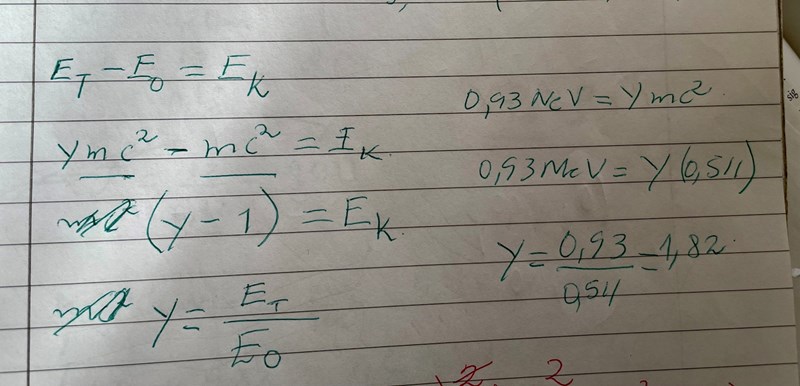 E_T - E_0 = E_K
γmc² - mc² = E_K
(γ - 1) = E_K
γ = E_T / E_0
0,93 MeV = γmc²
0,93 MeV = γ(0,511)
γ = 0,93 / 0,511 = 1,82
2 2